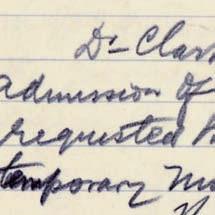 Dr Clar
admission of
requested
temporary